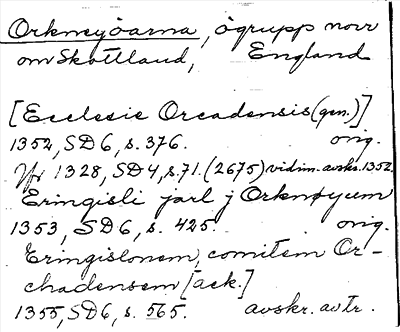 Orkneyöarna, ögrupp norr
om Skottland, England
[Ecclesie Orcadensis (gen.)]
1352, SD6, s. 376. orig.
Jfr 1328, SD4, s. 71. (2675) vidim. avskr. 1352
Eringisli jarl j Orknøyum
1353, SD6, s. 425. orig.
Eringislonem, comitem Or-
chadensem [ack.]
1355, SD6, s. 565. avskr. av tr.